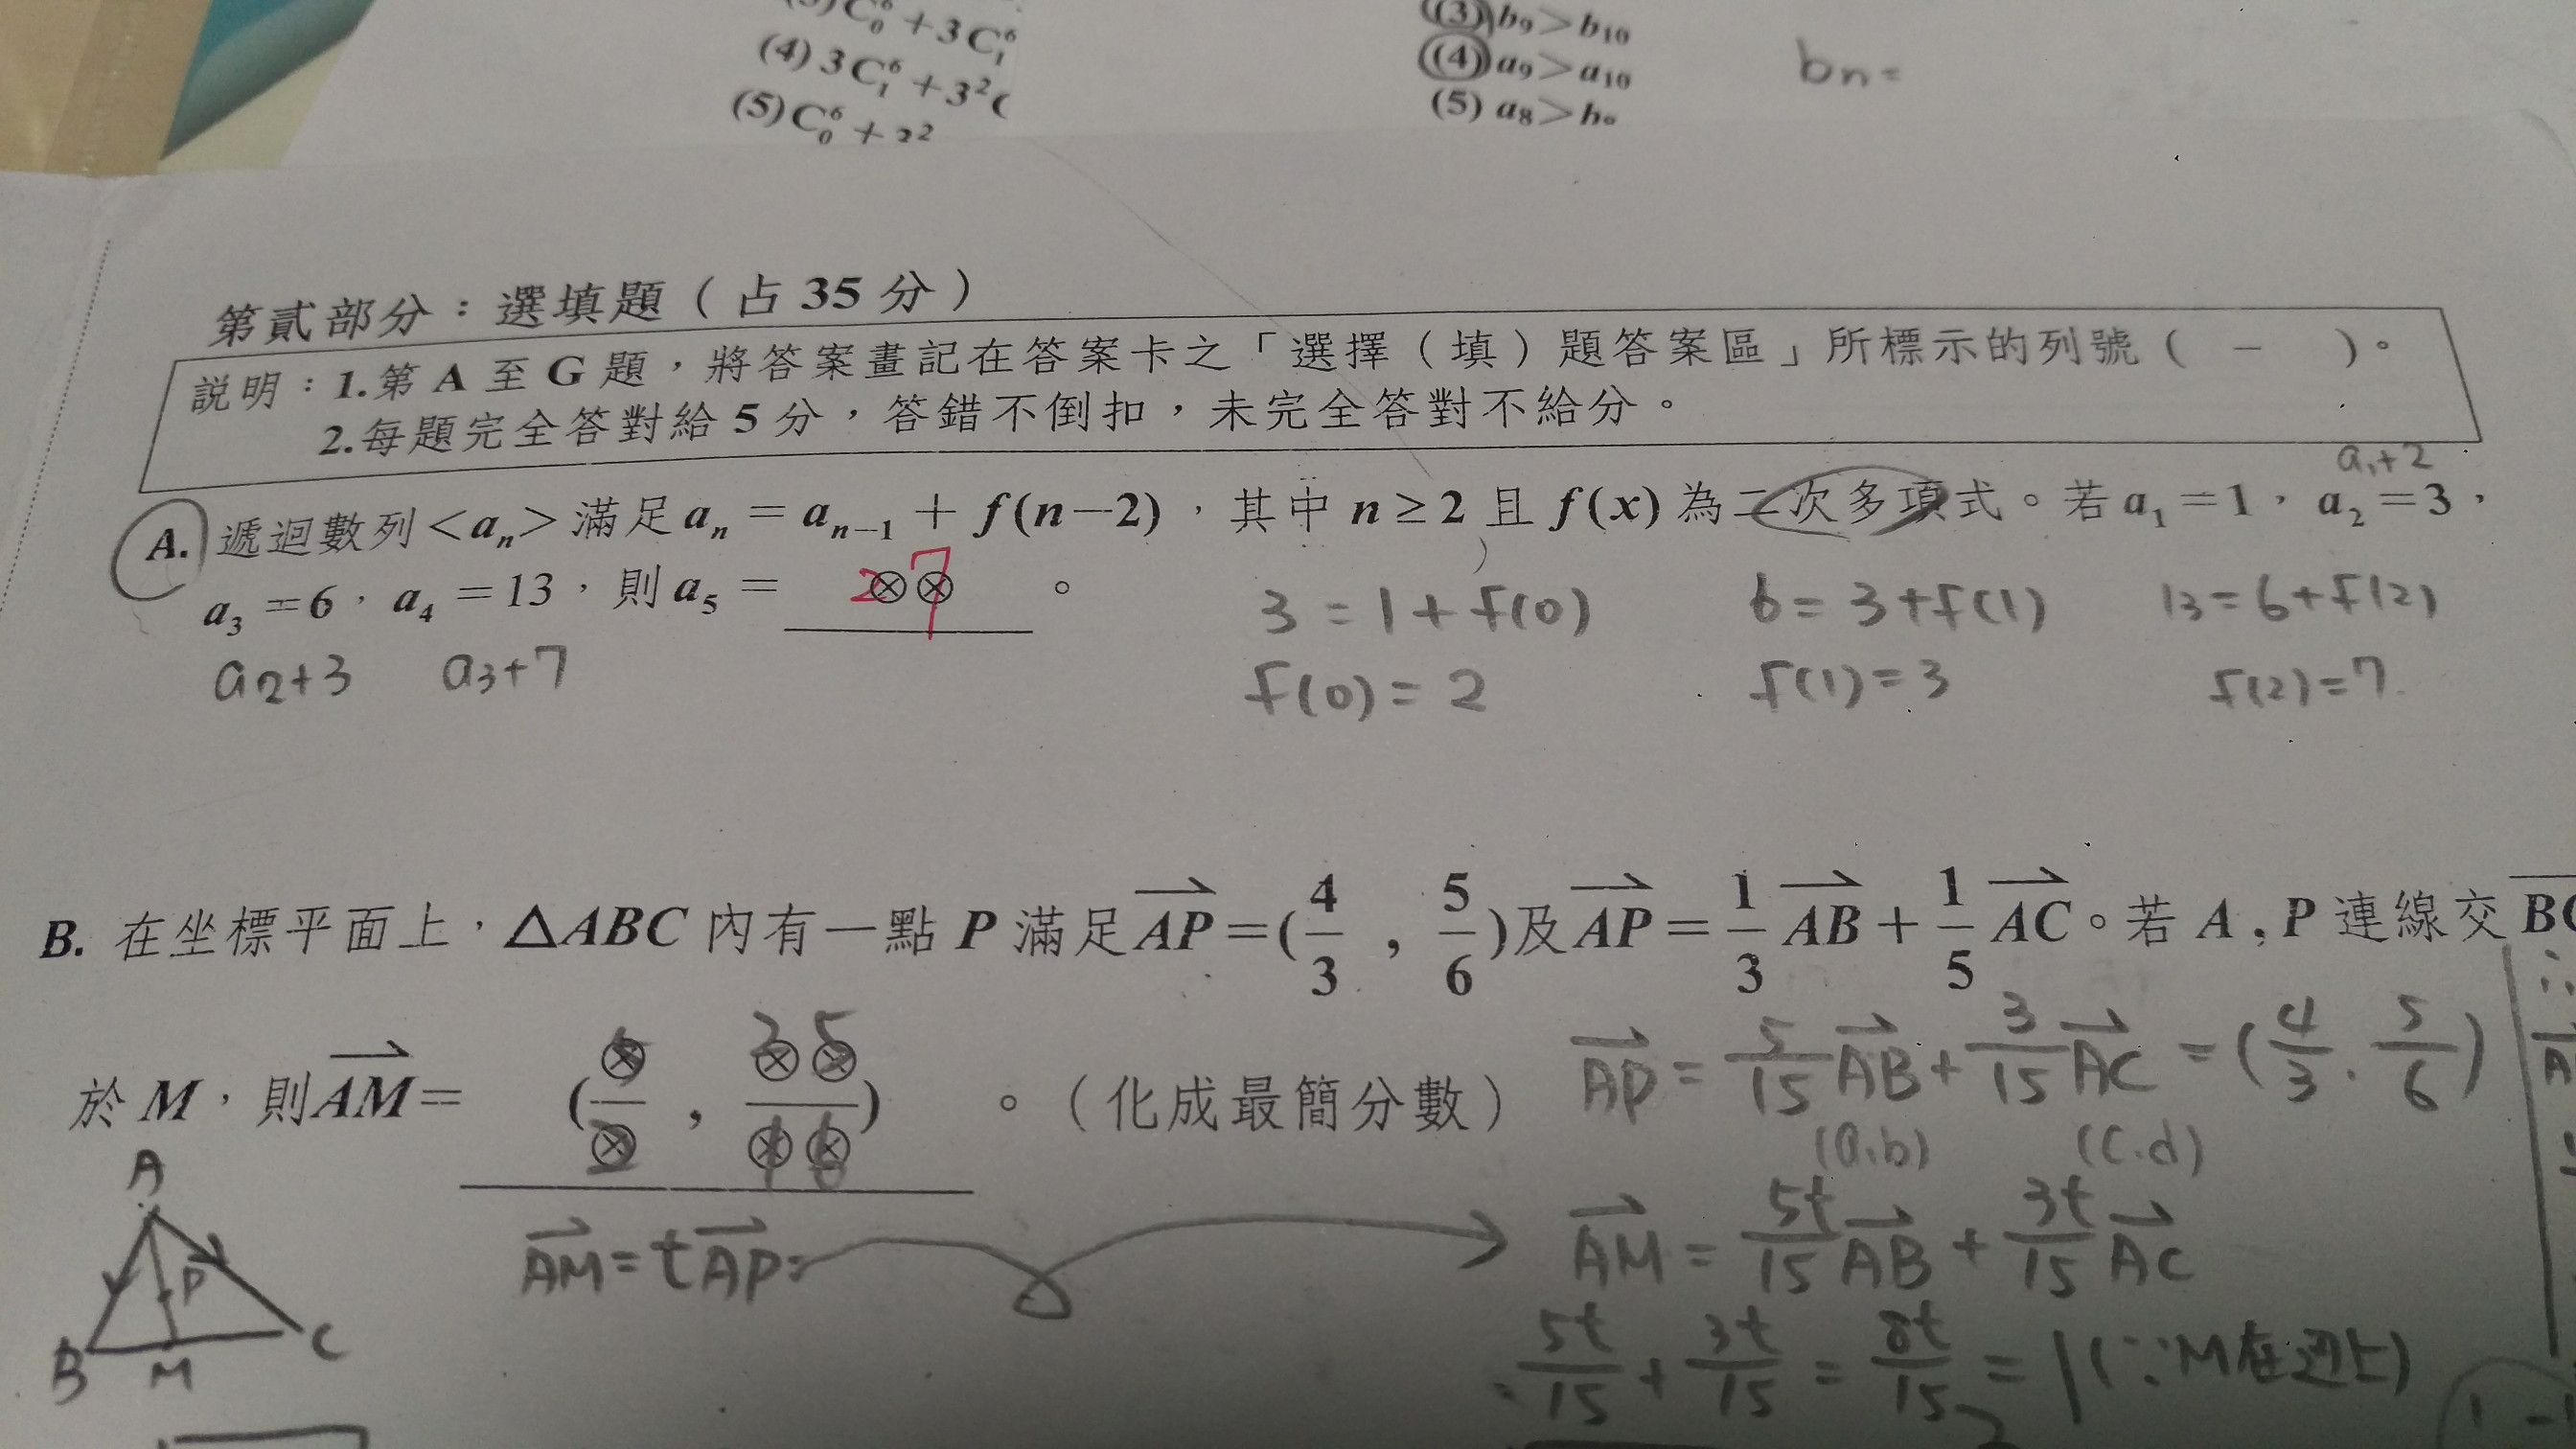 (3) C₀⁶ + 3C₁⁶
(4) 3C₁⁶ + 3²C
(5) C₀⁶ + 2²
(3) b₉ > b₁₀
(4) a₉ > a₁₀
(5) a₈ > b₈
bn =
第貳部分：選填題（占 35 分）
說明：1.第 A 至 G 題，將答案畫記在答案卡之「選擇（填）題答案區」所標示的列號（ – ）。
2.每題完全答對給 5 分，答錯不倒扣，未完全答對不給分。
a₁+2
A. 遞迴數列 <aₙ> 滿足 aₙ = aₙ₋₁ + f(n−2)，其中 n ≥ 2 且 f(x) 為二次多項式。若 a₁ = 1，a₂ = 3，
a₃ = 6，a₄ = 13，則 a₅ = 2⊗⊗7 。
3 = 1 + f(0) 6 = 3 + f(1) 13 = 6 + f(2)
a₂+3 a₃+7 f(0) = 2 f(1) = 3 f(2) = 7
B. 在坐標平面上，△ABC 內有一點 P 滿足 AP⃗ = (4/3 , 5/6) 及 AP⃗ = 1/3 AB⃗ + 1/5 AC⃗。若 A , P 連線交 BC
於 M，則 AM⃗ = (⊗/⊗ , ⊗⊗/⊗⊗) 。（化成最簡分數）
AP⃗ = 5/15 AB⃗ + 3/15 AC⃗ = (4/3 . 5/6)
(a.b) (c.d)
AM⃗ = tAP⃗ =
AM⃗ = 5t/15 AB⃗ + 3t/15 AC⃗
5t/15 + 3t/15 = 8t/15 = 1 (∵M在边上)
A
P
B M C